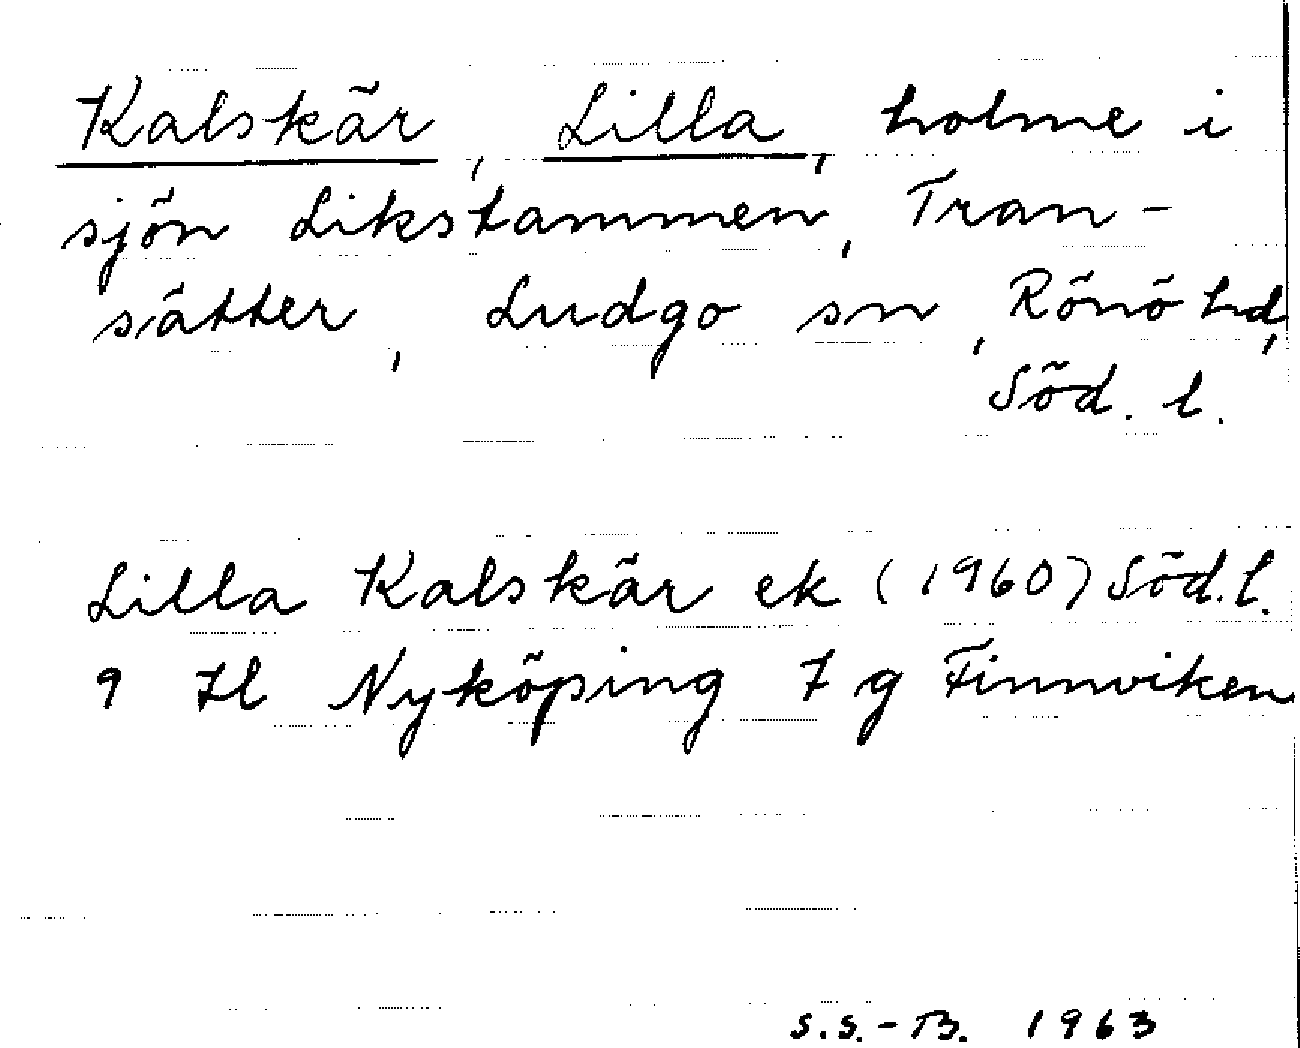 Kalskär, Lilla, holme i
sjön Likstammen, Tran-
sätter, Ludgo sn, Rönö hd,
Söd. l.
Lilla Kalskär ek (1960) Söd. l.
9 Il Nyköping 7 g Finnviken
S.S.-B. 1963